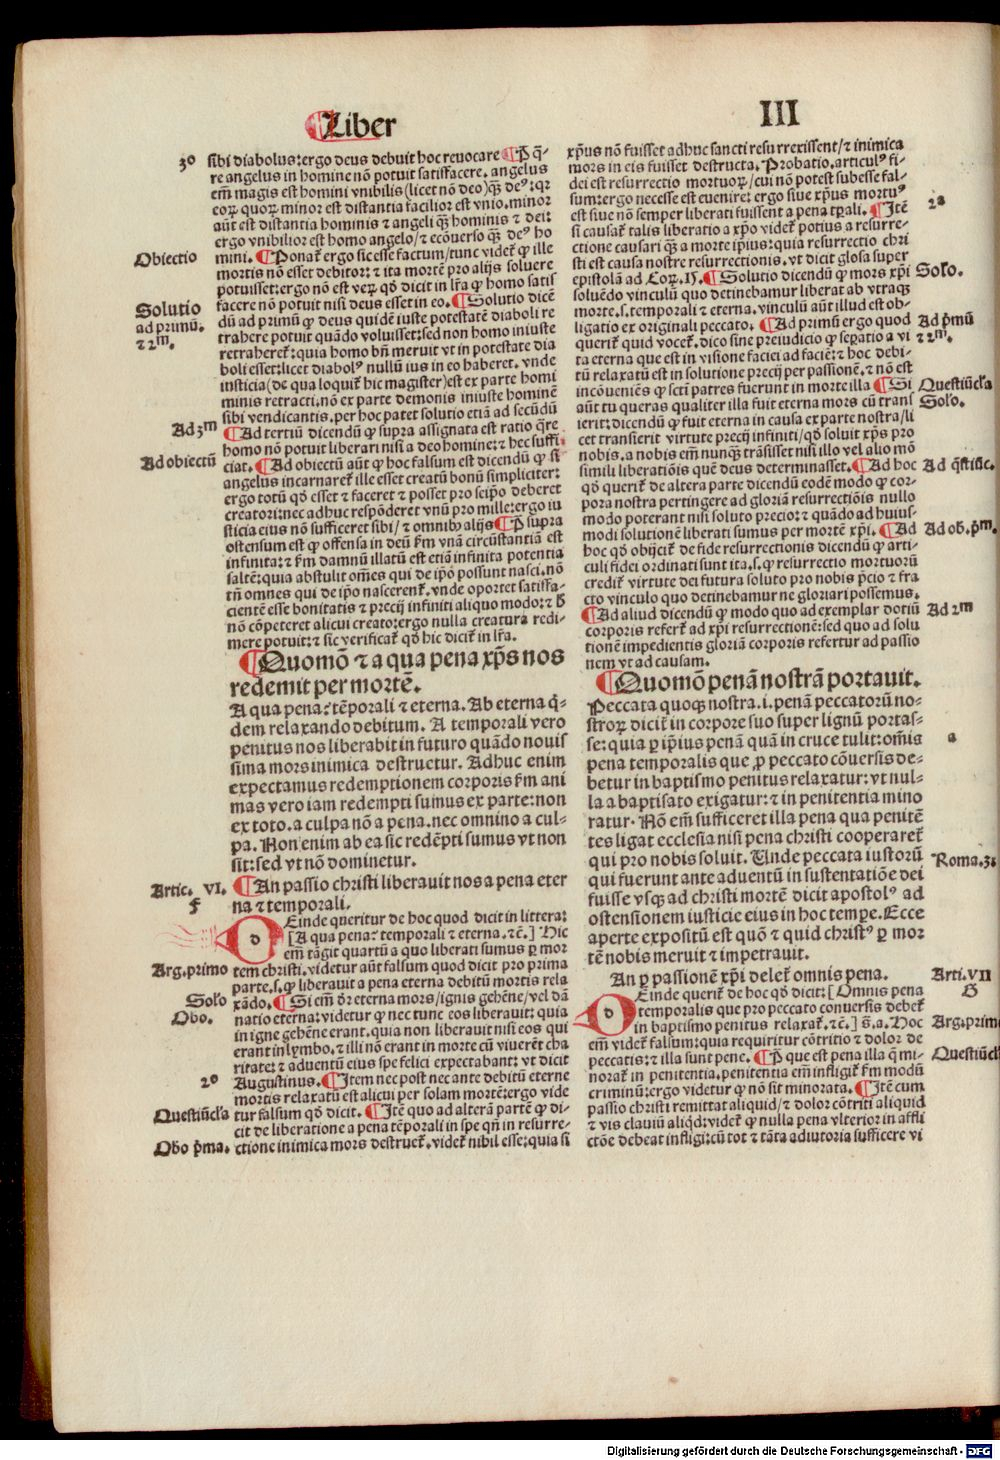 Liber
III
3º
sibi diabolus: ergo deus debuit hoc reuocare ¶ P̄ q̄-
re angelus in homine nō potuit satisfacere. angelus
em̄ magis est homini vnibilis (licet nō deo) qƺ deꝰ: qꝛ
eoꝝ quoꝝ minor est distantia facilior est vnio. minor
aūt est distantia hominis ⁊ angeli qƺ hominis ⁊ dei:
ergo vnibilior est homo angelo/ ⁊ ecōuerso qƺ deꝰ ho
Obiectio
mini. ¶ Ponat᷑ ergo sic esse factum/ tunc videt᷑ ꝙ ille
mortis nō esset debitor: ⁊ ita mortē pro alijs soluere
potuisset: ergo nō est veꝝ qđ dicit in lr̄a ꝙ homo satis
Solutio
ad primū.
⁊ 2m.
facere nō potuit nisi deus esset in eo. ¶ Solutio dicē
dū ad primū ꝙ deus quidē iuste potestatē diaboli re
trahere potuit quādo voluisset: sed non homo iniuste
retraheret᷑: quia homo bn̄ meruit vt in potestate dia
boli esset: licet diabolꝰ nullū ius in eo haberet. vnde
iusticia (de qua loquit᷑ hic magister) est ex parte homi
minis retracti. nō ex parte demonis iniuste hominē
sibi vendicantis. per hoc patet solutio etiā ad secūdū
Ad 3m
¶ Ad tertiū dicendū ꝙ supra assignata est ratio q̄re
homo nō potuit liberari nisi a deo homine: ⁊ hec suffi
Ad obiectū
ciat. ¶ Ad obiectū aūt ꝙ hoc falsum est dicendū ꝙ si
angelus incarnaret᷑ ille esset creatū bonū simpliciter:
ergo totū qđ esset ⁊ faceret ⁊ posset pro seipō deberet
creatori: nec adhuc respōderet vnū pro mille: ergo iu
sticia eius nō sufficeret sibi/ ⁊ omnibꝰ alijs ¶ P̄ supra
ostensum est ꝙ offensa in deū ẜm vnā circūstantiā est
infinita: ⁊ ẜm damnū illatū est etiā infinita potentia
saltē: quia abstulit om̄es qui de ip̄o possunt nasci. nō
tn̄ omnes qui de ip̄o nascerent᷑. vnde oportet satisfa-
cientē esse bonitatis ⁊ precij infiniti aliquo modo: ⁊ ħ
nō cōpeteret alicui creato: ergo nulla creatura redi-
mere potuit: ⁊ sic verificat᷑ qđ hic dicit᷑ in lr̄a.
¶ Quomō ⁊ a qua pena xp̄s nos
redemit per mortē.
A qua pena: tēporali ⁊ eterna. Ab eterna q̇-
dem relaxando debitum. A temporali vero
penitus nos liberabit in futuro quādo nouis
sima mors inimica destruetur. Adhuc enim
expectamus redemptionem corporis ẜm ani
mas vero iam redempti sumus ex parte: non
ex toto. a culpa nō a pena. nec omnino a cul-
pa. Non enim ab ea sic redēpti sumus vt non
sit: sed vt nō dominetur.
Artic. VI.
f
¶ An passio christi liberauit nos a pena eter
na ⁊ temporali.
d
Einde queritur de hoc quod dicit in littera:
[A qua pena: temporali ⁊ eterna. ⁊ē.] Hic
em̄ tāgit quartū a quo liberati sumus ꝑ mor
Arg. primo
tem christi. videtur aūt falsum quod dicit pro prima
parte. s. ꝙ liberauit a pena eterna debitū mortis rela
Solo
xādo. ¶ Si em̄ dr̄ eterna mors/ ignis gehēne/ vel dā
Obo.
natio eterna: videtur ꝙ nec tunc eos liberauit: quia
in igne gehēne erant. quia non liberauit nisi eos qui
erant in lymbo. ⁊ illi nō erant in morte cū viuerēt cha
ritate: ⁊ aduentū eius spe felici expectabant: vt dicit
2º
Augustinus. ¶ Item nec post nec ante debitū eterne
mortis relaxatū est alicui per solam mortē: ergo vide
Questiūcła
tur falsum qđ dicit. ¶ Itē quo ad alterā partē ꝙ di-
cit de liberatione a pena tēporali in spe qn̄ in resurre-
Obo p̄ma.
ctione inimica mors destruet᷑. videt᷑ nihil esse: quia si
xp̄us nō fuisset adhuc sancti resurrexissent/ ⁊ inimica
mors in eis fuisset destructa. Probatio. articulꝰ fi-
dei est resurrectio mortuoꝝ/ cui nō potest subesse fal-
sum: ergo necesse est euenire: ergo siue xp̄us mortuꝰ
2ª
est siue nō semper liberati fuissent a pena tꝑali. ¶ Itē
si causat᷑ talis liberatio a xp̄o videt᷑ potius a resurre-
ctione causari qƺ a morte ip̄ius: quia resurrectio chri
sti est causa nostre resurrectionis. vt dicit glosa super
Solo.
epistolā ad Coꝝ. 15. ¶ Solutio dicendū ꝙ mors xp̄i
soluēdo vinculū quo detinebamur liberat ab vtraqꝫ
morte. s. temporali ⁊ eterna. vinculū aūt illud est ob-
Ad p̄mū
⁊ 2m.
ligatio ex originali peccato. ¶ Ad primū ergo quod
querit᷑ quid vocet᷑. dico sine preiudicio ꝙ sepatio a vi
ta eterna que est in visione faciei ad faciē: ⁊ hoc debi-
tū relaxatū est in solutione precij per passionē. ⁊ nō est
Questiūcła
incōueniēs ꝙ scti patres fuerunt in morte illa ¶ Si
Solo.
aūt tu queras qualiter illa fuit eterna mors cū trans
ierit: dicendū ꝙ fuit eterna in causa ex parte nostra/ li
cet transierit virtute precij infiniti/ qđ soluit xp̄s pro
nobis. a nobis em̄ nunqƺ trāsisset nisi illo vel alio mō
Ad q̄stiūc.
simili liberatiōis quē deus determinasset. ¶ Ad hoc
qđ querit᷑ de altera parte dicendū eodē modo ꝙ cor-
pora nostra pertingere ad gloriā resurrectiōis nullo
modo poterant nisi soluto precio: ⁊ quādo ad huius-
Ad ob. p̄m.
modi solutionē liberati sumus per mortē xp̄i. ¶ Ad
hoc qđ obijcit᷑ de fide resurrectionis dicendū ꝙ arti-
culi fidei ordinati sunt ita. s. ꝙ resurrectio mortuorū
credit᷑ virtute dei futura soluto pro nobis p̄cio ⁊ fra
cto vinculo quo detinebamur ne gloriari possemus.
Ad 2m
¶ Ad aliud dicendū ꝙ modo quo ad exemplar dotiū
corporis refert᷑ ad xp̄i resurrectionē: sed quo ad solu
tionē impedientis gloriā corporis refertur ad passio
nem vt ad causam.
¶ Quomō penā nostrā portauit.
Peccata quoqꝫ nostra. i. penā peccatorū no-
stroꝝ dicit᷑ in corpore suo super lignū portas-
a
se: quia ꝑ ip̄ius penā quā in cruce tulit: om̄is
pena temporalis que ꝓ peccato cōuersis de-
betur in baptismo penitus relaxatur: vt nul-
la a baptisato exigatur: ⁊ in penitentia mino
ratur. Nō em̄ sufficeret illa pena qua penitē
tes ligat ecclesia nisi pena christi cooperaret᷑
Roma. 3.
qui pro nobis soluit. Unde peccata iustorū
qui fuerunt ante aduentū in sustentatiōe dei
fuisse vsqꝫ ad christi mortē dicit apostolꝰ ad
ostensionem iusticie eius in hoc tempe. Ecce
aperte expositū est quō ⁊ quid christꝰ ꝑ mor
tē nobis meruit ⁊ impetrauit.
Arti. VII
G
An ꝑ passionē xp̄i delet᷑ omnis pena.
d
Einde querit᷑ de hoc qđ dicit: [Omnis pena
temporalis que pro peccato conuersis debet᷑
Arg. primo
in baptismo penitus relaxat᷑. ⁊ē.] s̄. a. Hoc
em̄ videt᷑ falsum: quia requiritur cōtritio ⁊ dolor de
Questiūcł
peccatis: ⁊ illa sunt pene. ¶ P̄ que est pena illa q̄ mi-
norat᷑ in penitentia. penitentia em̄ infligit᷑ ẜm modū
criminū: ergo videtur ꝙ nō sit minorata. ¶ Itē cum
passio christi remittat aliquid/ ⁊ dolor cōtriti aliquid
⁊ vis clauiū aliqđ: videt᷑ ꝙ nulla pena vlterior in affli
ctōe debeat infligi: cū tot ⁊ tāta adiutoria sufficere vi
Digitalisierung gefördert durch die Deutsche Forschungsgemeinschaft - DFG